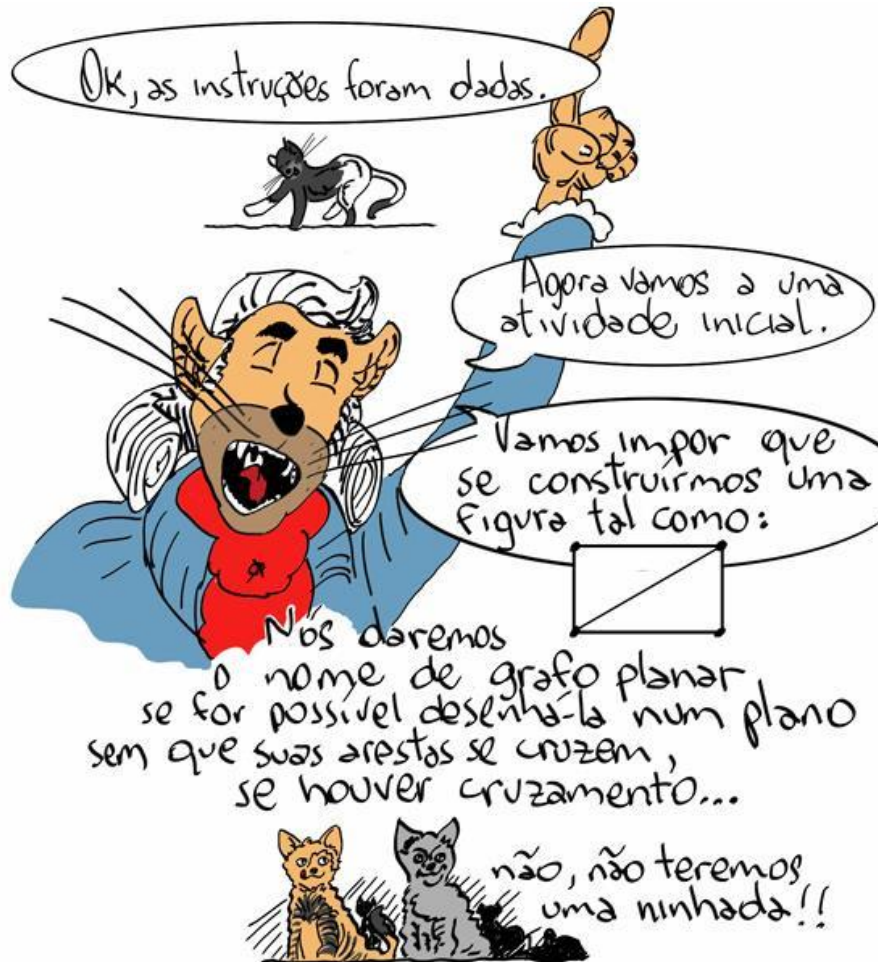 Ok, as instruções foram dadas.
Agora vamos a uma
atividade inicial.
Vamos impor que
se construírmos uma
figura tal como:
Nós daremos
o nome de grafo planar
se for possível desenhá-la num plano
sem que suas arestas se cruzem,
se houver cruzamento...
não, não teremos
uma ninhada!!